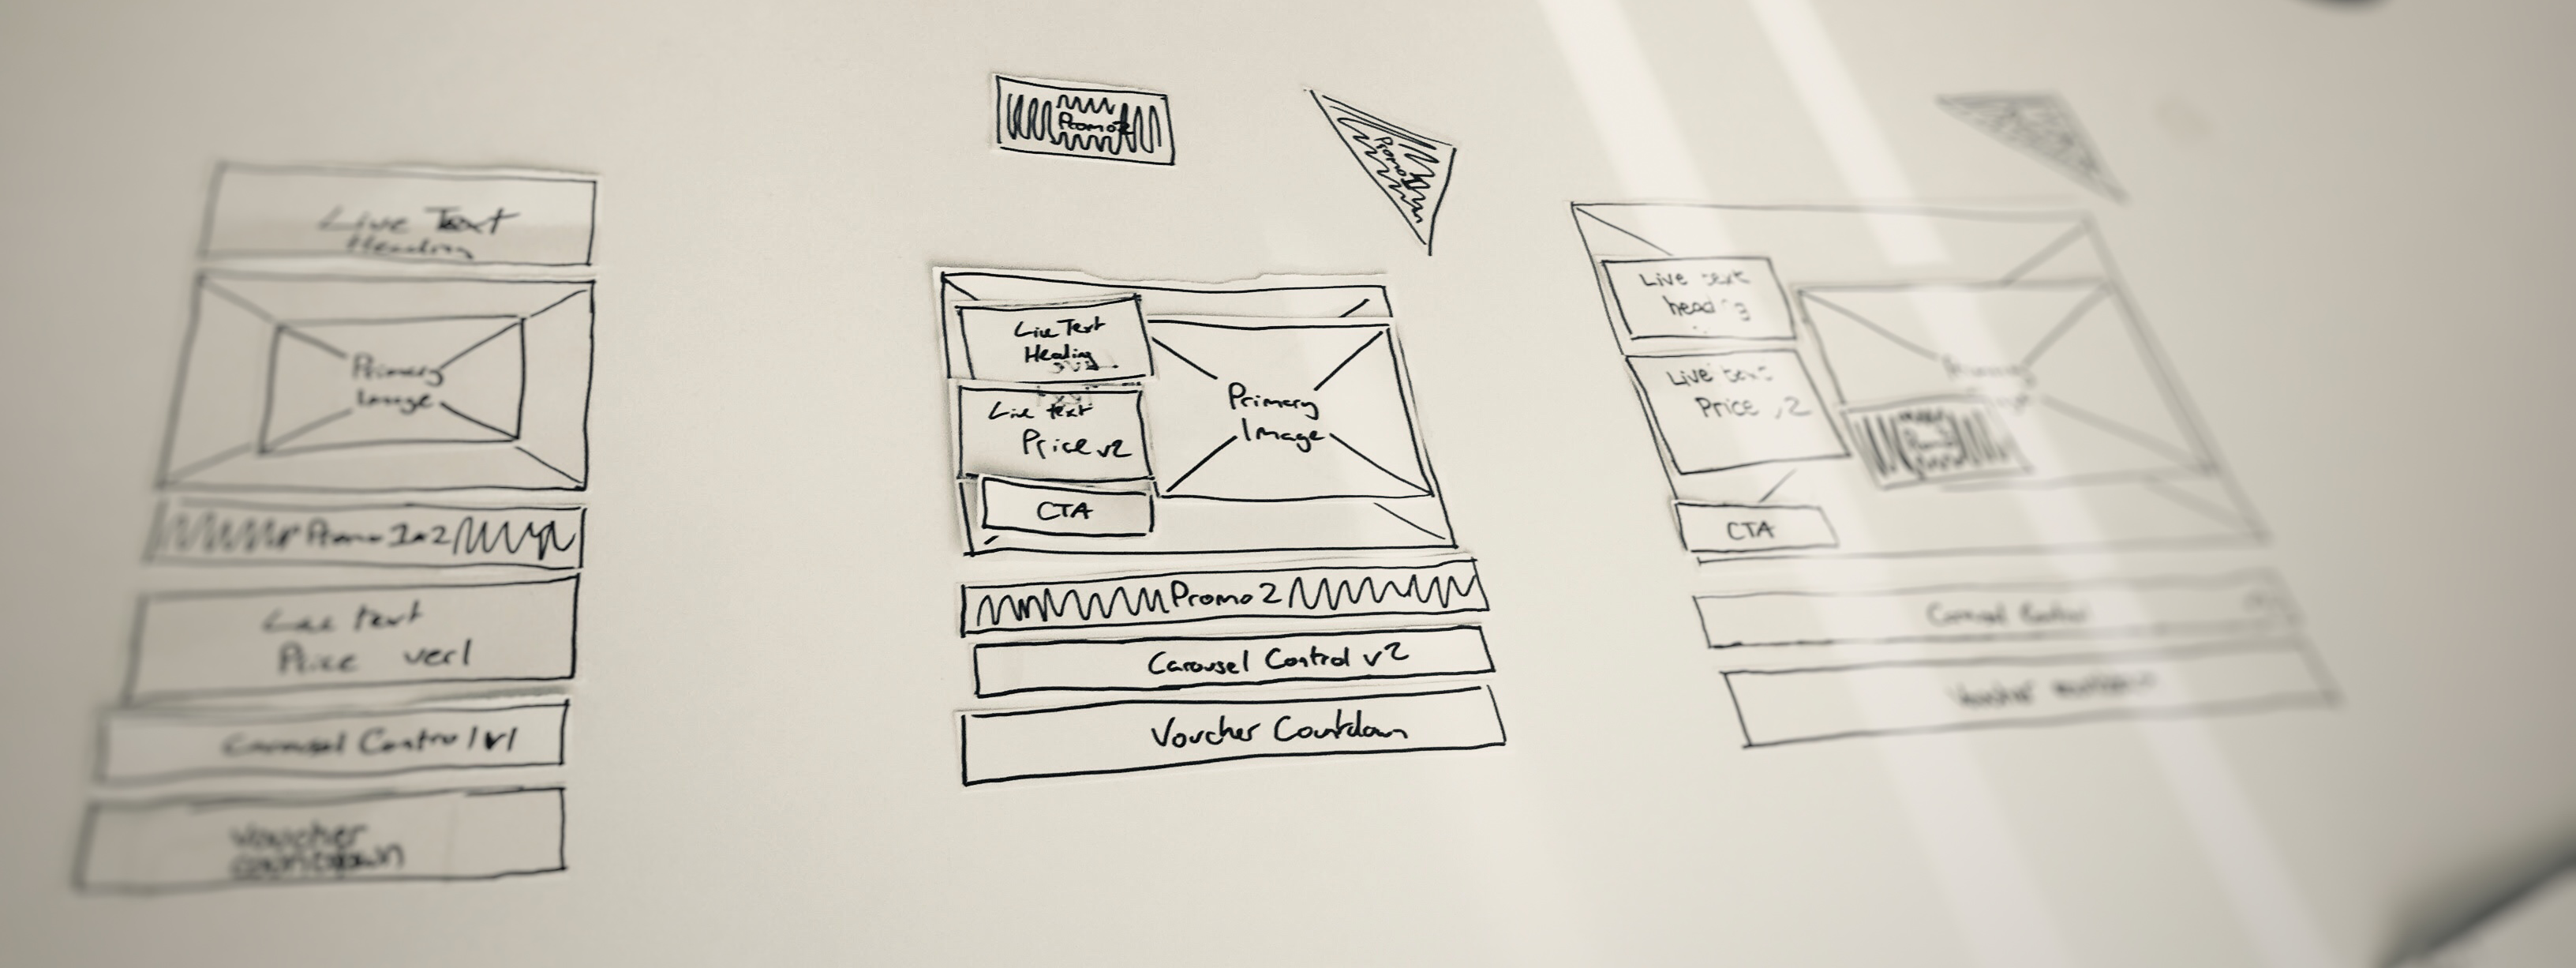 Live Text
Heading
Primary
Image
Promo 1 or 2
Live text
Price ver1
Carousel Control v1
Voucher
countdown
Promo 2
Promo 1
Live Text
Heading
Live text
Price v2
CTA
Primary
Image
Promo 2
Carousel Control v2
Voucher Countdown
Live text
heading
Live text
Price v2
CTA
Primary
Carousel Control
Voucher countdown